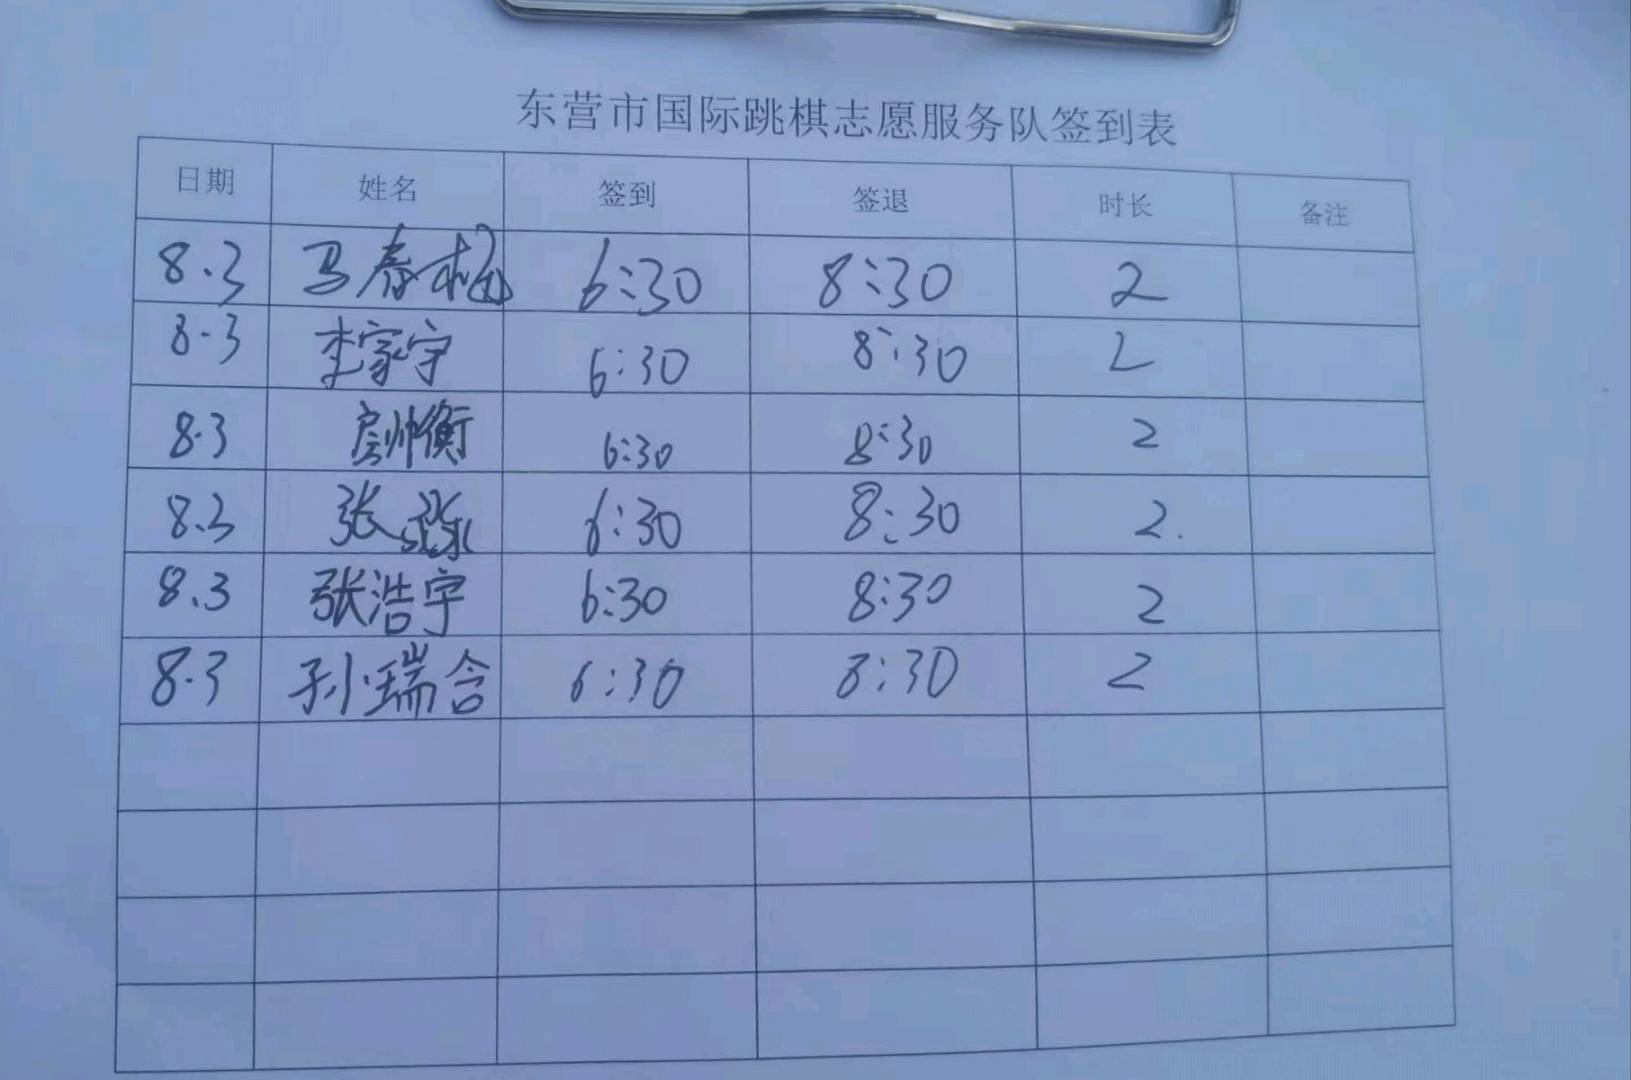 东营市国际跳棋志愿服务队签到表
日期 姓名 签到 签退 时长 备注
8.3 马春梅 6:30 8:30 2
8.3 李家宇 6:30 8:30 2
8.3 房帅衡 6:30 8:30 2
8.3 张 6:30 8:30 2.
8.3 张浩宇 6:30 8:30 2
8.3 孙瑞含 6:30 8:30 2